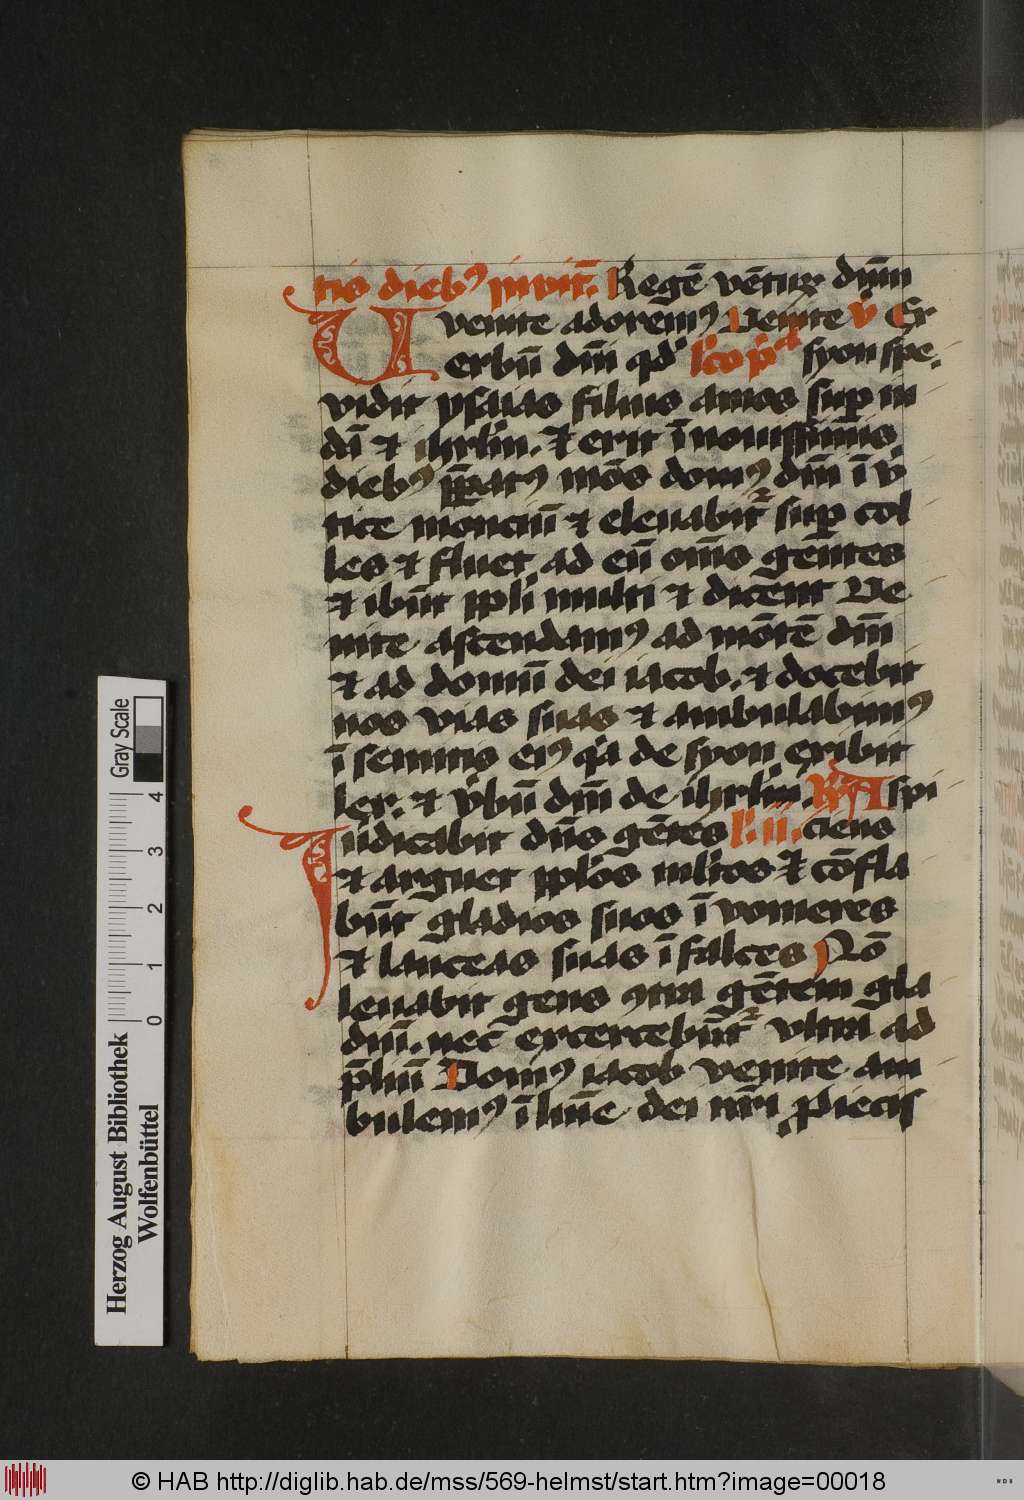 tis dieb9 īnvit̄. Regē vētuꝝ dn̄m
venite adorem9 Venite v̓ Ex
Verbū dn̄i qd' lc̄o pͣ syon spe.
vidit ysaias filius amos suꝑ iu
dā ⁊ ihrl̄m. ⁊ erit ī nouissimis
dieb9 p̄parat9 mōs dom9 dn̄i ī v̓
tice monciū ⁊ eleuabit᷑ suꝑ col
les ⁊ fluet ad eū om̄s gentes
⁊ ibūt ppl̓i multi ⁊ dicent Ve
nite ascendam9 ad mōtē dn̄i
⁊ ad domū dei iacob. ⁊ docebit
nos vias suas ⁊ ambulabim9
ī semitis ei9 q̓a de syon exibit
lex. ⁊ v̓bū dn̄i de ihrl̄m. R̄ Aspi
Iudicabit dn̄s gētes l̓. ii. ciens
⁊ arguet ppl̓os ml̓tos ⁊ cōfla
būt gladios suos ī vomeres
⁊ lanceas suas ī falces Nō
leuabit gens ꝯtra gētem gla
diū. nec exercebūt᷑ vltra ad
p̄liū Dom9 iacob venite am
bulem9 ī lūīe dei nr̄i ꝓiecis
Herzog August Bibliothek
Wolfenbüttel
0 1 2 3 4
Gray Scale
© HAB http://diglib.hab.de/mss/569-helmst/start.htm?image=00018